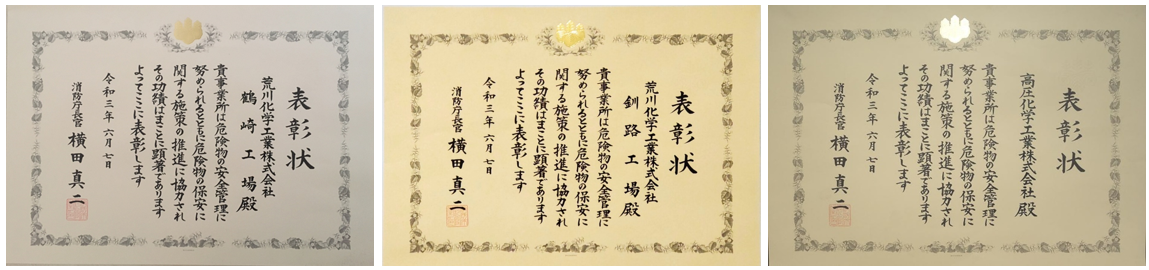 表彰状
荒川化学工業株式会社
鶴崎工場殿
貴事業所は危険物の安全管理に
努められるとともに危険物の保安に
関する施策の推進に協力され
その功績はまことに顕著であります
よってここに表彰します
令和三年六月七日
消防庁長官 横田真二
表彰状
荒川化学工業株式会社
釧路工場殿
貴事業所は危険物の安全管理に
努められるとともに危険物の保安に
関する施策の推進に協力され
その功績はまことに顕著であります
よってここに表彰します
令和三年六月七日
消防庁長官 横田真二
表彰状
高圧化学工業株式会社殿
貴事業所は危険物の安全管理に
努められるとともに危険物の保安に
関する施策の推進に協力され
その功績はまことに顕著であります
よってここに表彰します
令和三年六月七日
消防庁長官 横田真二